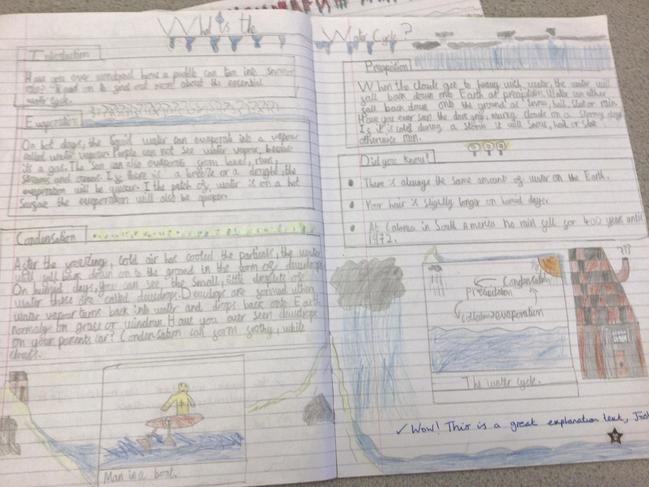 What is the Water Cycle?
Introduction
Have you ever wondered how a puddle can turn into
read on to find out more about the essential
water cycle.
Evaporation
On hot days, the liquid water can evaporate into a vapour
called water vapour. People can not see water vapour, because
is a gas. The Sun can also evaporate from land, rivers,
streams and ocean. If there is a breeze or a drought, the
evaporation will be quicker. I the patch of water is on a hot
surface the evaporation will also be quicker.
Condensation
After the cold air has cooled the particals, the water
will down on to the ground in the form of dewdrops
On humid days, you can see the small, little droplets of
water these are called dewdrops. Dewdrops are formed when
water vapour turns back into water and drops back onto Earth
normaly on grass or windows. Have you ever seen dewdrops
on your parents car? Condensation can form frothy, white
clouds.
Man in a boat.
When the clouds get to heavy with water, the water will
fall back down onto Earth at Water can either
fall back down onto the ground as snow, hail, sleet or rain.
Have you ever seen the dark grey, clouds on a stormy day?
If it is cold during a storm it will snow, hail or
otherwise rain.
Did you know?
There is always the same amount of water on the Earth.
Your hair is slightly longer on humid days.
At in South America no rain fell for 400 years until
1972.
Condensation
evaporation
The water cycle.
✓ Wow! This is a great explanation text,